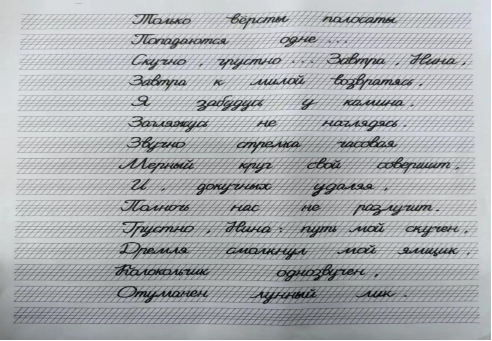 Только вёрсты полосаты
Попадаются одне...
Скучно, грустно... Завтра, Нина,
Завтра к милой возвратясь,
Я забудусь у камина,
Загляжусь не наглядясь.
Звучно стрелка часовая
Мерный круг свой совершит,
И, докучных удаляя,
Полночь нас не разлучит.
Грустно, Нина: путь мой скучен,
Дремля смолкнул мой ямщик,
Колокольчик однозвучен,
Отуманен лунный лик.